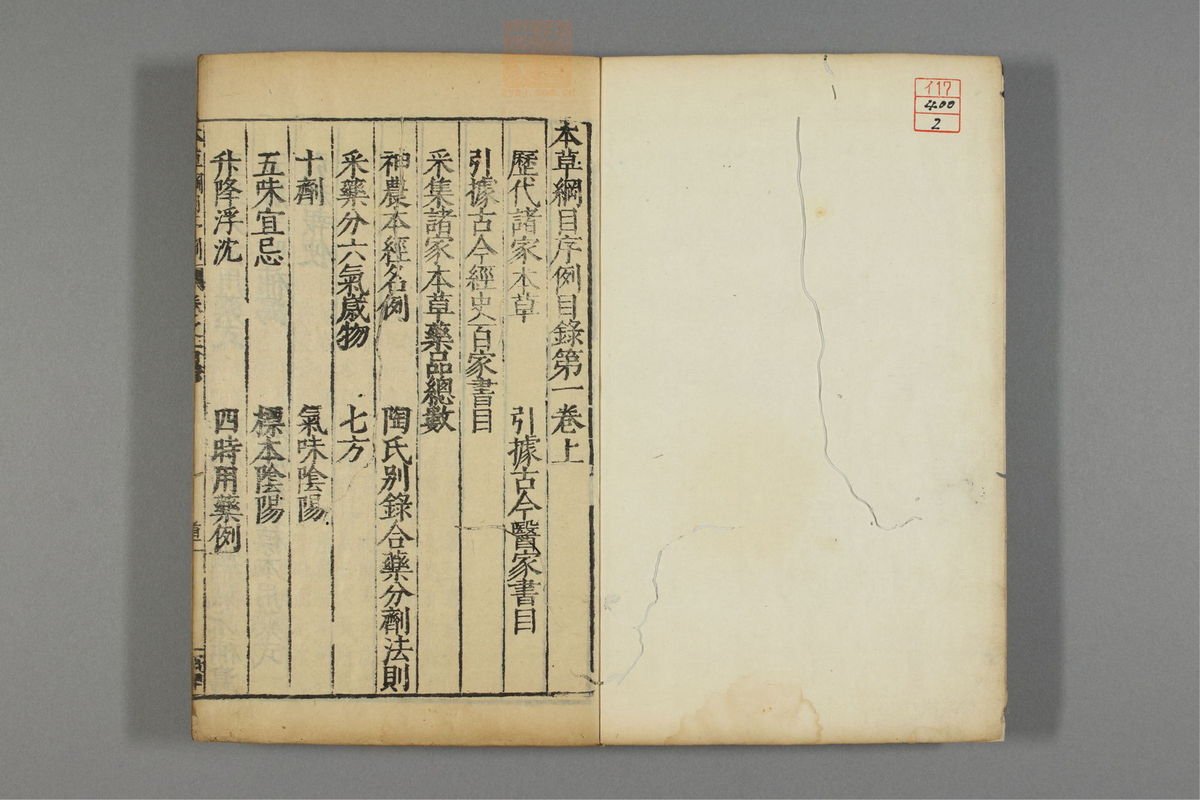 117
400
2
本草綱目序例目錄第一卷上
歷代諸家本草　引據古今醫家書目
引據古今經史百家書目
采集諸家本草藥品總數
神農本經名例　陶氏別錄合藥分劑法則
采藥分六氣歲物　七方
十劑　氣味陰陽
五味宜忌　標本陰陽
升降浮沈　四時用藥例